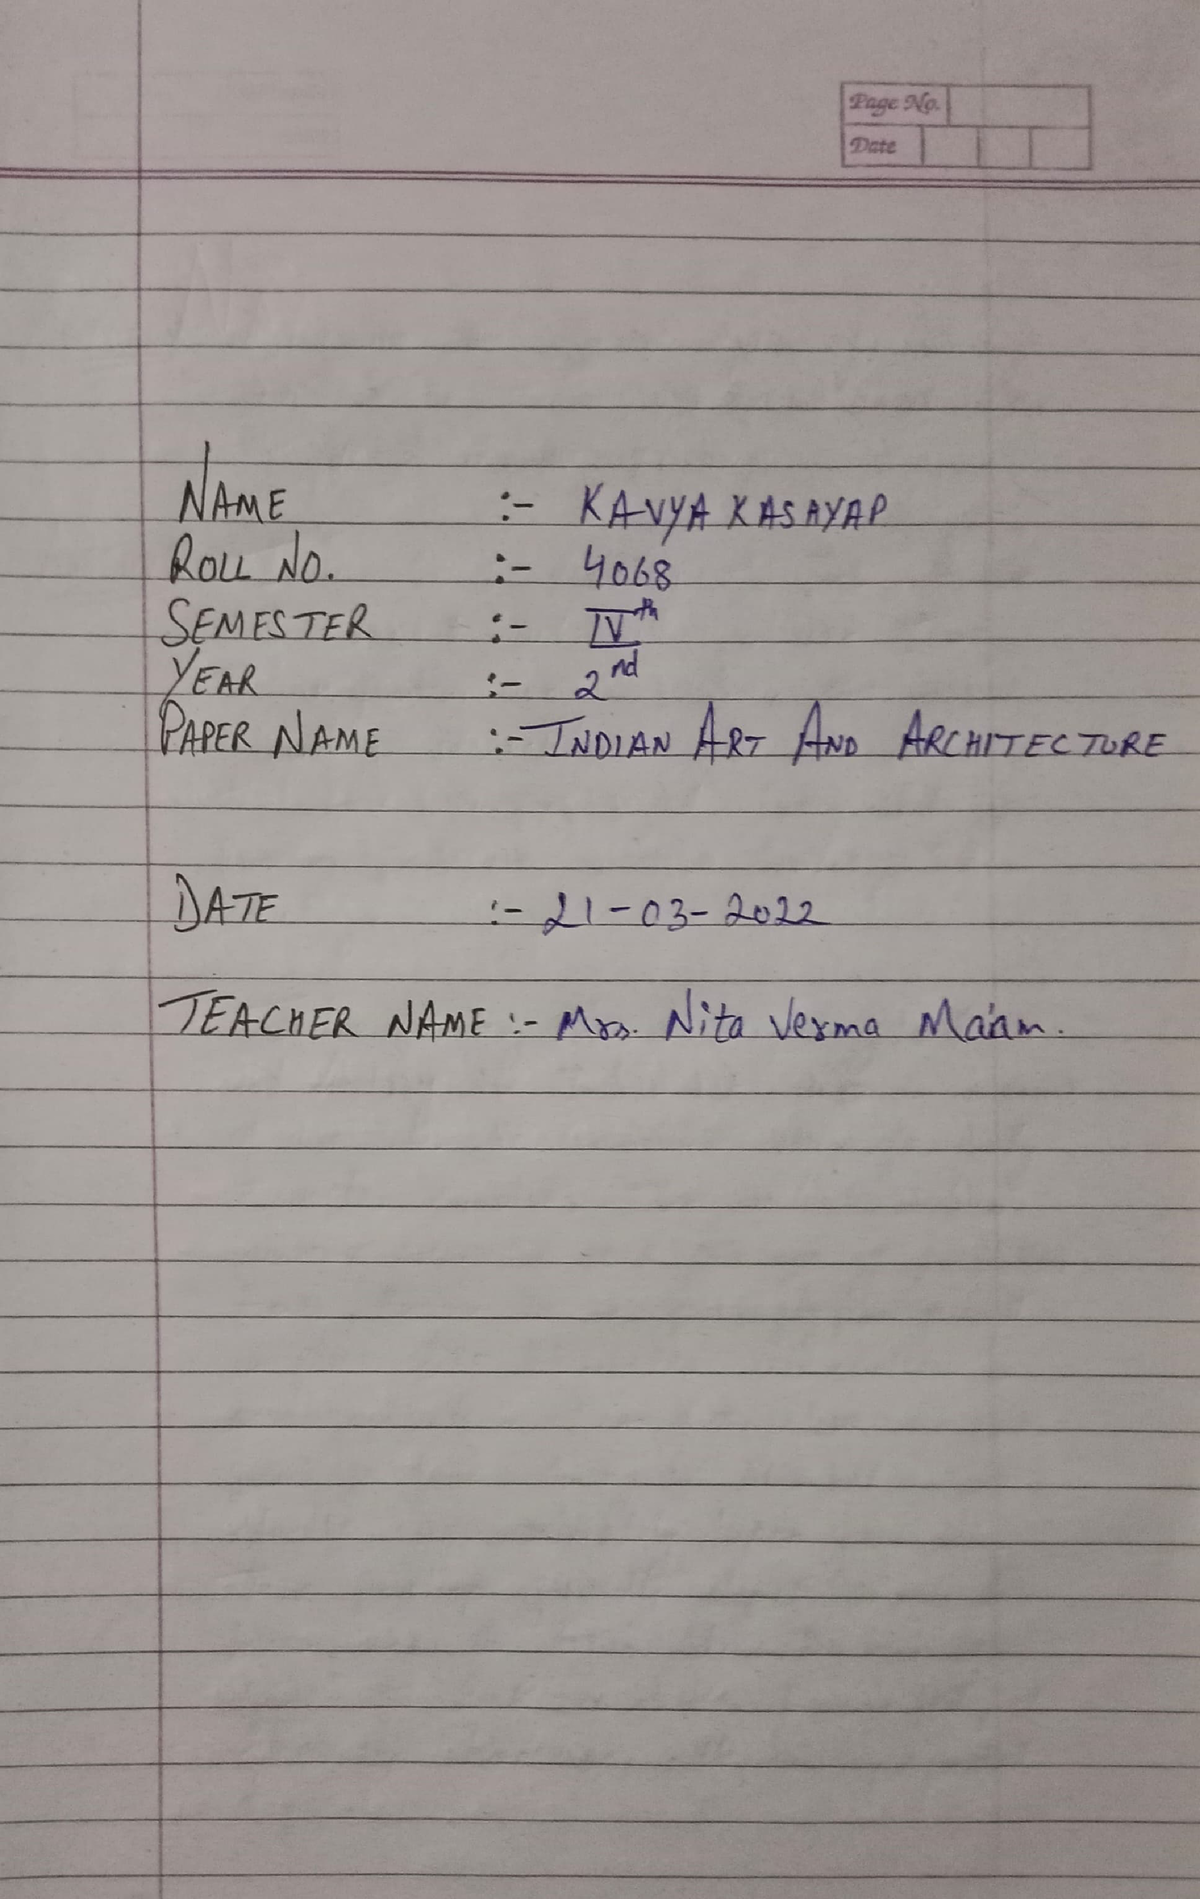 Page No.
Date
NAME :- KAVYA KASAYAP
ROLL NO. :- 4068
SEMESTER :- IVth
YEAR :- 2nd
PAPER NAME :- INDIAN ART AND ARCHITECTURE
DATE :- 21-03-2022
TEACHER NAME :- Mrs. Nita Verma Ma'am.